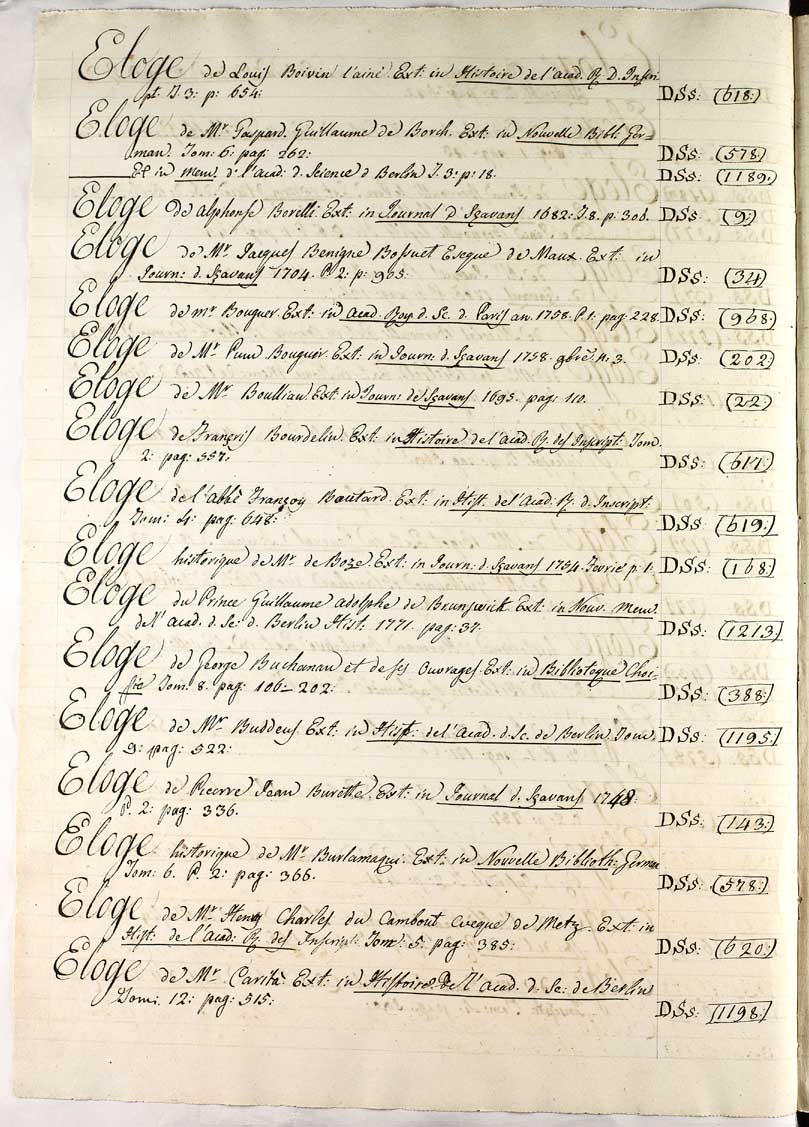 Eloge de Louis Boivin l'ainé. Ext: in Histoire de l'acad. R. D. Inscri
pt. T. 3: p: 654: DSs: (618:)
Eloge de Mr. Gaspard. Guillaume de Borch. Ext: in Nouvelle Bibl: Ger-
man. Tom: 6: pag: 262: DSs: (578:)
Et in Mem. d. l'acad: d. Science d Berlin T. 3: p: 18. DSs: (1189:)
Eloge de alphonse Borelli. Ext: in Journal d Sçavans 1682: T. 8. p: 306. DSs: (9:)
Eloge de Mr. Jacques Benigne Bossuet Eveque de Maux. Ext: in
Journ: d. Sçavans 1704. P. 2: p: 965: DSs: (34)
Eloge de mr Bouguer. Ext: in Acad. Roy. d. Sc. d. Paris an. 1758. P. 1. pag: 228. DSs: (968:)
Eloge de Mr. Bouguer. Ext: in Journ: d. Sçavans 1758. n. 3. DSs: (202:)
Eloge de Mr. Boulliau. Ext: in Journ: de Sçavans 1695. pag: 110. DSs: (22:)
Eloge de François Bourdelin. Ext: in Histoire de l'acad. R. des Inscript: Tom.
2: pag: 557: DSs: (617:)
Eloge de l'Abbé Françoy Boutard. Ext: in Hist. de l'Acad. R. d. Inscript:
Tom: 4: pag: 648: DSs: (619:)
Eloge historique de Mr. de Boze. Ext: in Journ: d. Sçavans 1754. Fevrie p: 1: DSs: (168:)
Eloge du Prince Guillaume adolphe de Brunswick Ext: in Nouv. Mem.
de l'acad. d. Sc: d. Berlin Hist. 1771. pag: 34. DSs: (1213)
Eloge de George Buchanan et de ses Ouvrages. Ext: in Biblioteque Choi-
sie Tom: 8. pag: 106 – 202: DSs: (388:)
Eloge de Mr. Buddeus Ext: in Hist: de l'acad. d. Sc. de Berlin. Tom.
9: pag: 522: DSs: (1195:)
Eloge de Pierre Jean Burette. Ext: in Journal d. Sçavans 1748:
P. 2: pag: 336. DSs: (143:)
Eloge historique de Mr. Burlamaqui. Ext: in Nouvelle Biblioth: German
Tom: 6. P. 2: pag: 366. DSs: (578:)
Eloge de Mr. Henry Charles du Cambout eveque de Metz. Ext: in
Hist. de l'Acad: R. des Inscript: Tom. 5. pag: 385: DSs: (620:)
Eloge de Mr. Carita Ext: in Histoire de l'acad. d. Sc: de Berlin
Tom. 12: pag: 515: DSs: (1198:)